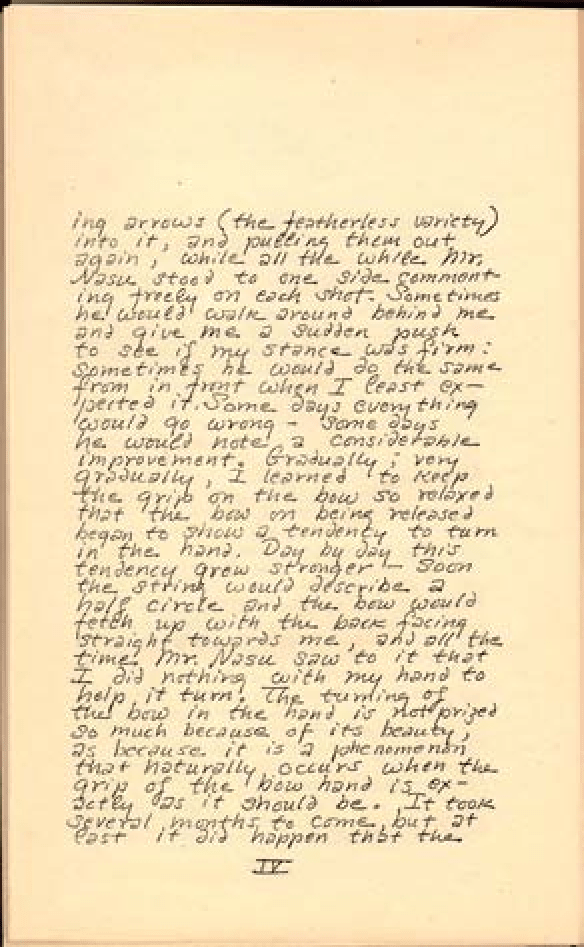 ing arrows (the featherless variety)
into it, and pulling them out
again, while all the while Mr.
Nasu stood to one side comment-
ing freely on each shot. Sometimes
he would walk around behind me
and give me a sudden push
to see if my stance was firm:
Sometimes he would do the same
from in front when I least ex-
pected it. Some days everything
would go wrong - some days
he would note a considerable
improvement. Gradually, very
gradually, I learned to keep
the grip on the bow so relaxed
that the bow on being released
began to show a tendency to turn
in the hand. Day by day this
tendency grew stronger - Soon
the string would describe a
half circle and the bow would
fetch up with the back facing
straight towards me, and all the
time Mr. Nasu saw to it that
I did nothing with my hand to
help it turn. The turning of
the bow in the hand is not prized
so much because of its beauty,
as because it is a phenomenon
that naturally occurs when the
grip of the bow hand is ex-
actly as it should be. It took
several months to come, but at
last it did happen that the
IV